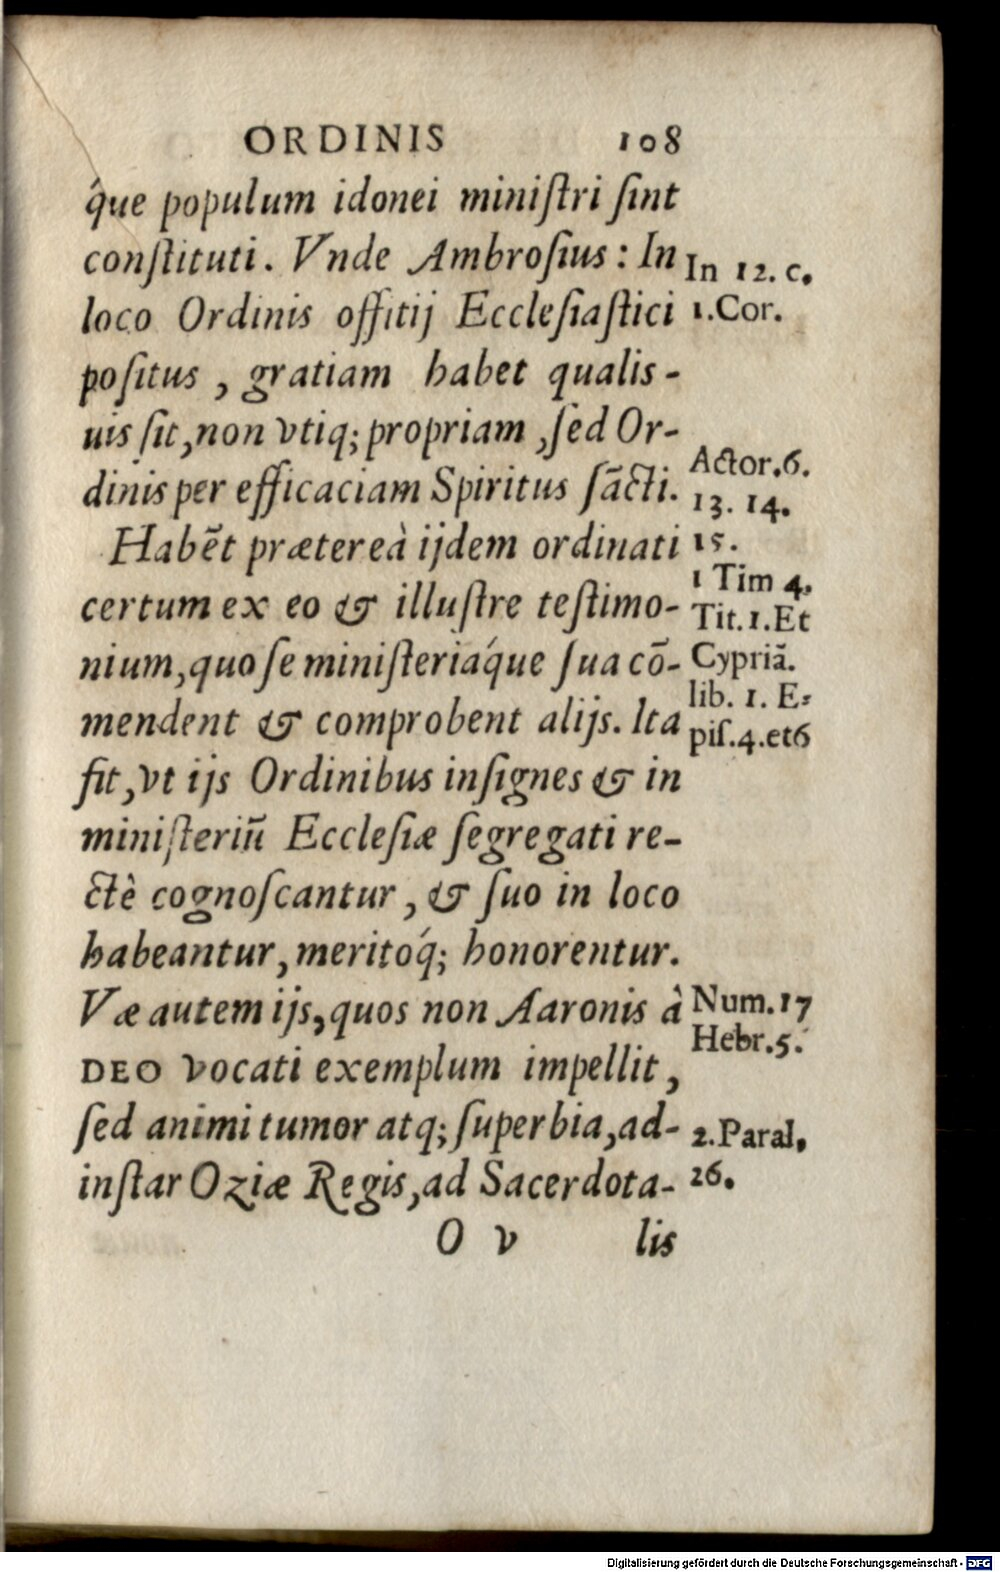 ORDINIS 108
q́ue populum idonei miniſtri ſint
conſtituti. Vnde Ambroſius: In
loco Ordinis offitij Eccleſiaſtici
poſitus, gratiam habet qualis-
uis ſit, non vtiq; propriam, ſed Or-
dinis per efficaciam Spiritus ſãcti.
Habẽt prætereà ijdem ordinati
certum ex eo & illuſtre teſtimo-
nium, quo ſe miniſteriaq́ue ſua cõ-
mendent & comprobent alijs. Ita
fit, vt ijs Ordinibus inſignes & in
miniſteriũ Eccleſiæ ſegregati re-
ctè cognoſcantur, & ſuo in loco
habeantur, meritoq́; honorentur.
Væ autem ijs, quos non Aaronis à
DEO vocati exemplum impellit,
ſed animi tumor atq; ſuperbia, ad-
inſtar Oziæ Regis, ad Sacerdota-
O v lis
In 12. c.
1.Cor.
Actor.6.
13. 14.
15.
1 Tim 4.
Tit.1.Et
Cypriã.
lib. 1. E-
piſ.4.et6
Num.17
Hebr.5.
2.Paral.
26.
Digitalisierung gefördert durch die Deutsche Forschungsgemeinschaft - DFG